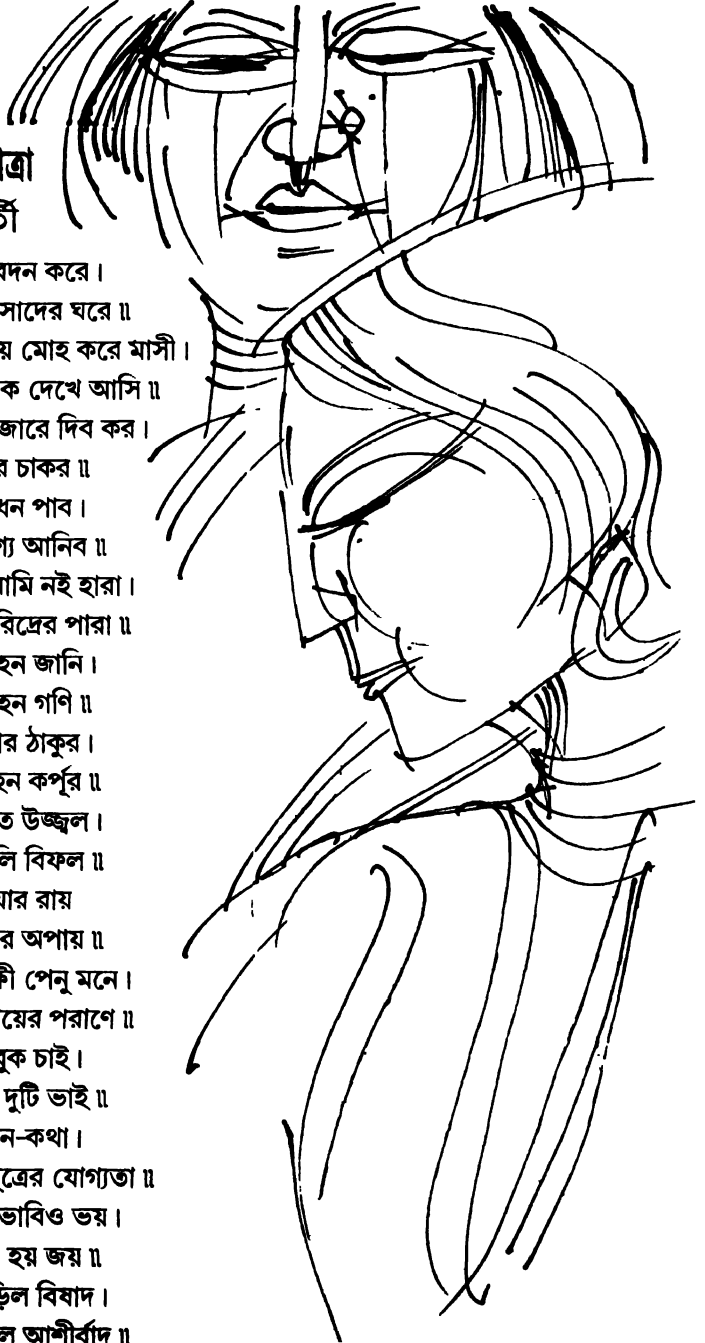 ত্রা
র্তী
বেদন করে।
সাদের ঘরে॥
য় মোহ করে মাসী।
ক দেখে আসি॥
জারে দিব কর।
র চাকর॥
ধন পাব।
গ্য আনিব॥
আমি নই হারা।
রিদ্রের পারা॥
হেন জানি।
হেন গণি॥
ার ঠাকুর।
হেন কর্পূর॥
ত উজ্জ্বল।
লি বিফল॥
যার রায়
র অপায়॥
কী পেনু মনে।
য়ের পরাণে॥
বুক চাই।
দুটি ভাই॥
ন-কথা।
ুত্রের যোগ্যতা॥
ভাবিও ভয়।
হয় জয়॥
ড়িল বিষাদ।
ল আশীর্বাদ॥